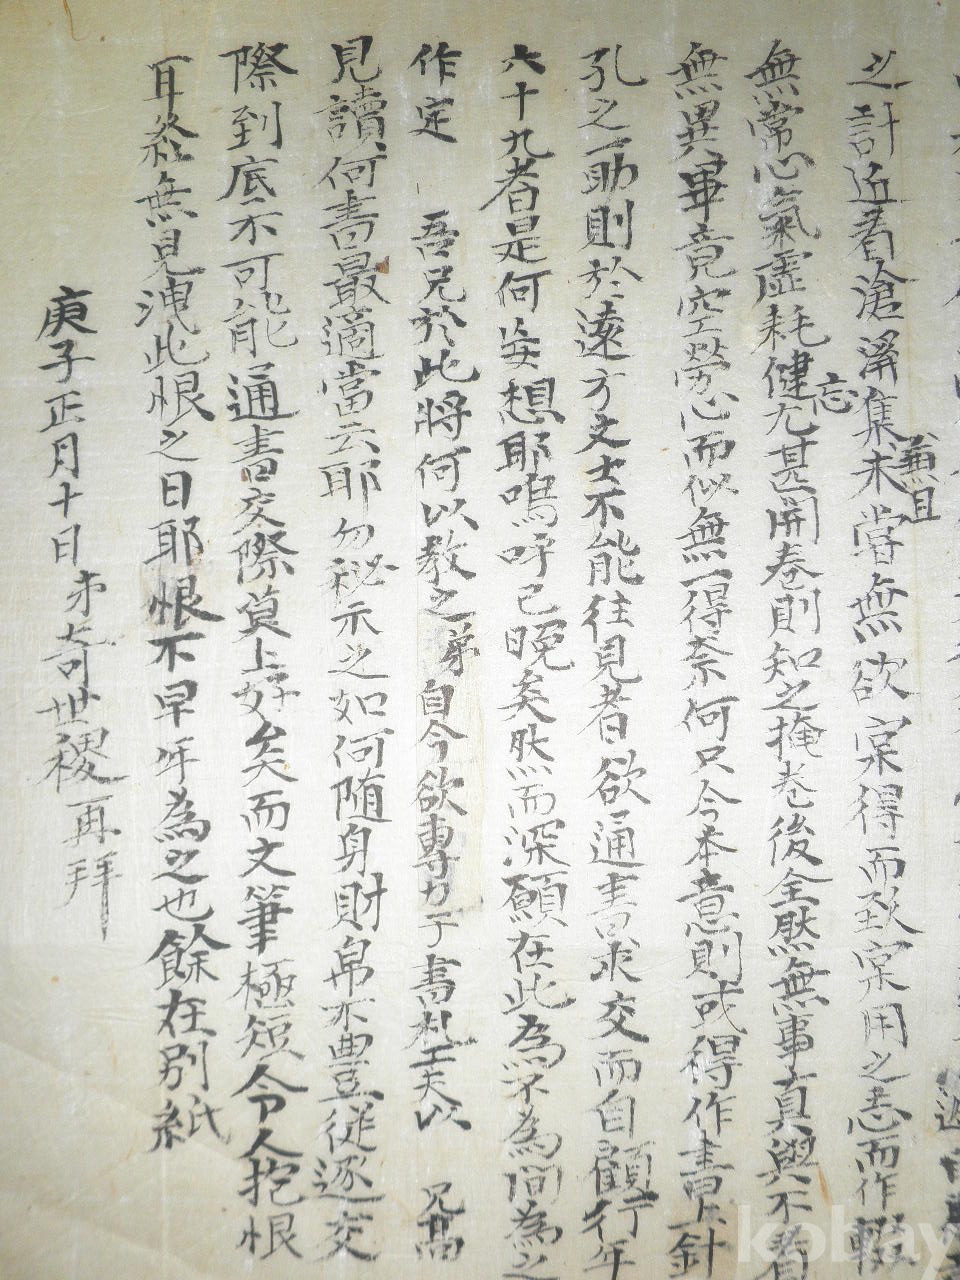 之計近看滄溟集未嘗無欲定得而致定用之志而作輟
兼且
無常心氣虛耗健忘尤甚開卷則知之掩卷後全然無事真與不看
無異畢竟空勞心而似無一得奈何只今本意則或得作書上針
孔之一助則於遠方文士不能往見者欲通書求交而自顧行年
六十九者是何妄想耶嗚呼已晩矣然而深願在此為不為間為之
作定 吾兄於此將何以教之弟自今欲專力于書札工夫以 兄高
見讀何書最適當云耶勿秘示之如何隨身財帛不豊從逐交
際到底不可能通書交際莫上好矣而文筆極短令人抱恨
耳終無見洩此恨之日耶恨不早年為之也餘在別紙
庚子正月十日弟奇世稷再拜
kobay